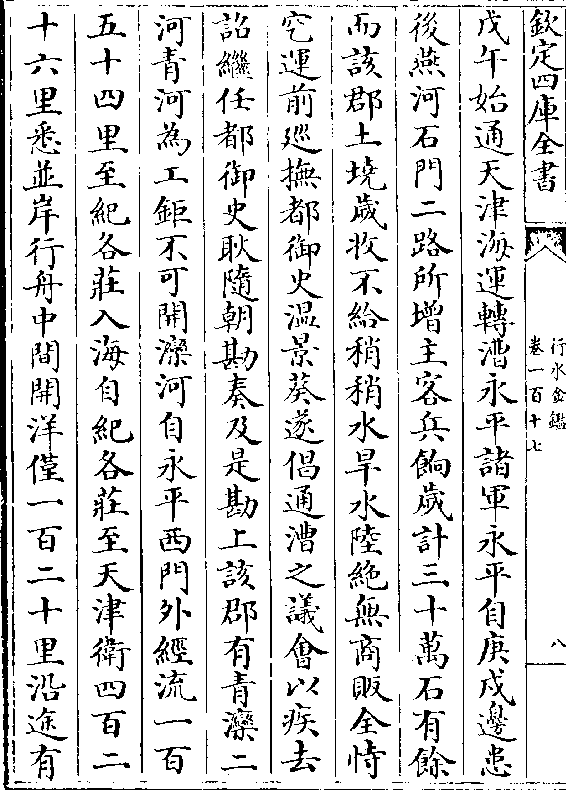 欽定四庫全書
行水金鑑
卷一百十七
八
戊午始通天津海運轉漕永平諸軍永平自庚戌邊患
後燕河石門二路所增主客兵餉歲計三十萬石有餘
而該郡土墝歲收不給稍稍水旱水陸絶無商販全恃
空運前廵撫都御史温景葵遂倡通漕之議會以疾去
詔繼任都御史耿隨朝勘奏及是勘上該郡有青灤二
河青河為工鉅不可開灤河自永平西門外經流一百
五十四里至紀各莊入海自紀各莊至天津衛四百二
十六里悉並岸行舟中間開洋僅一百二十里沿途有